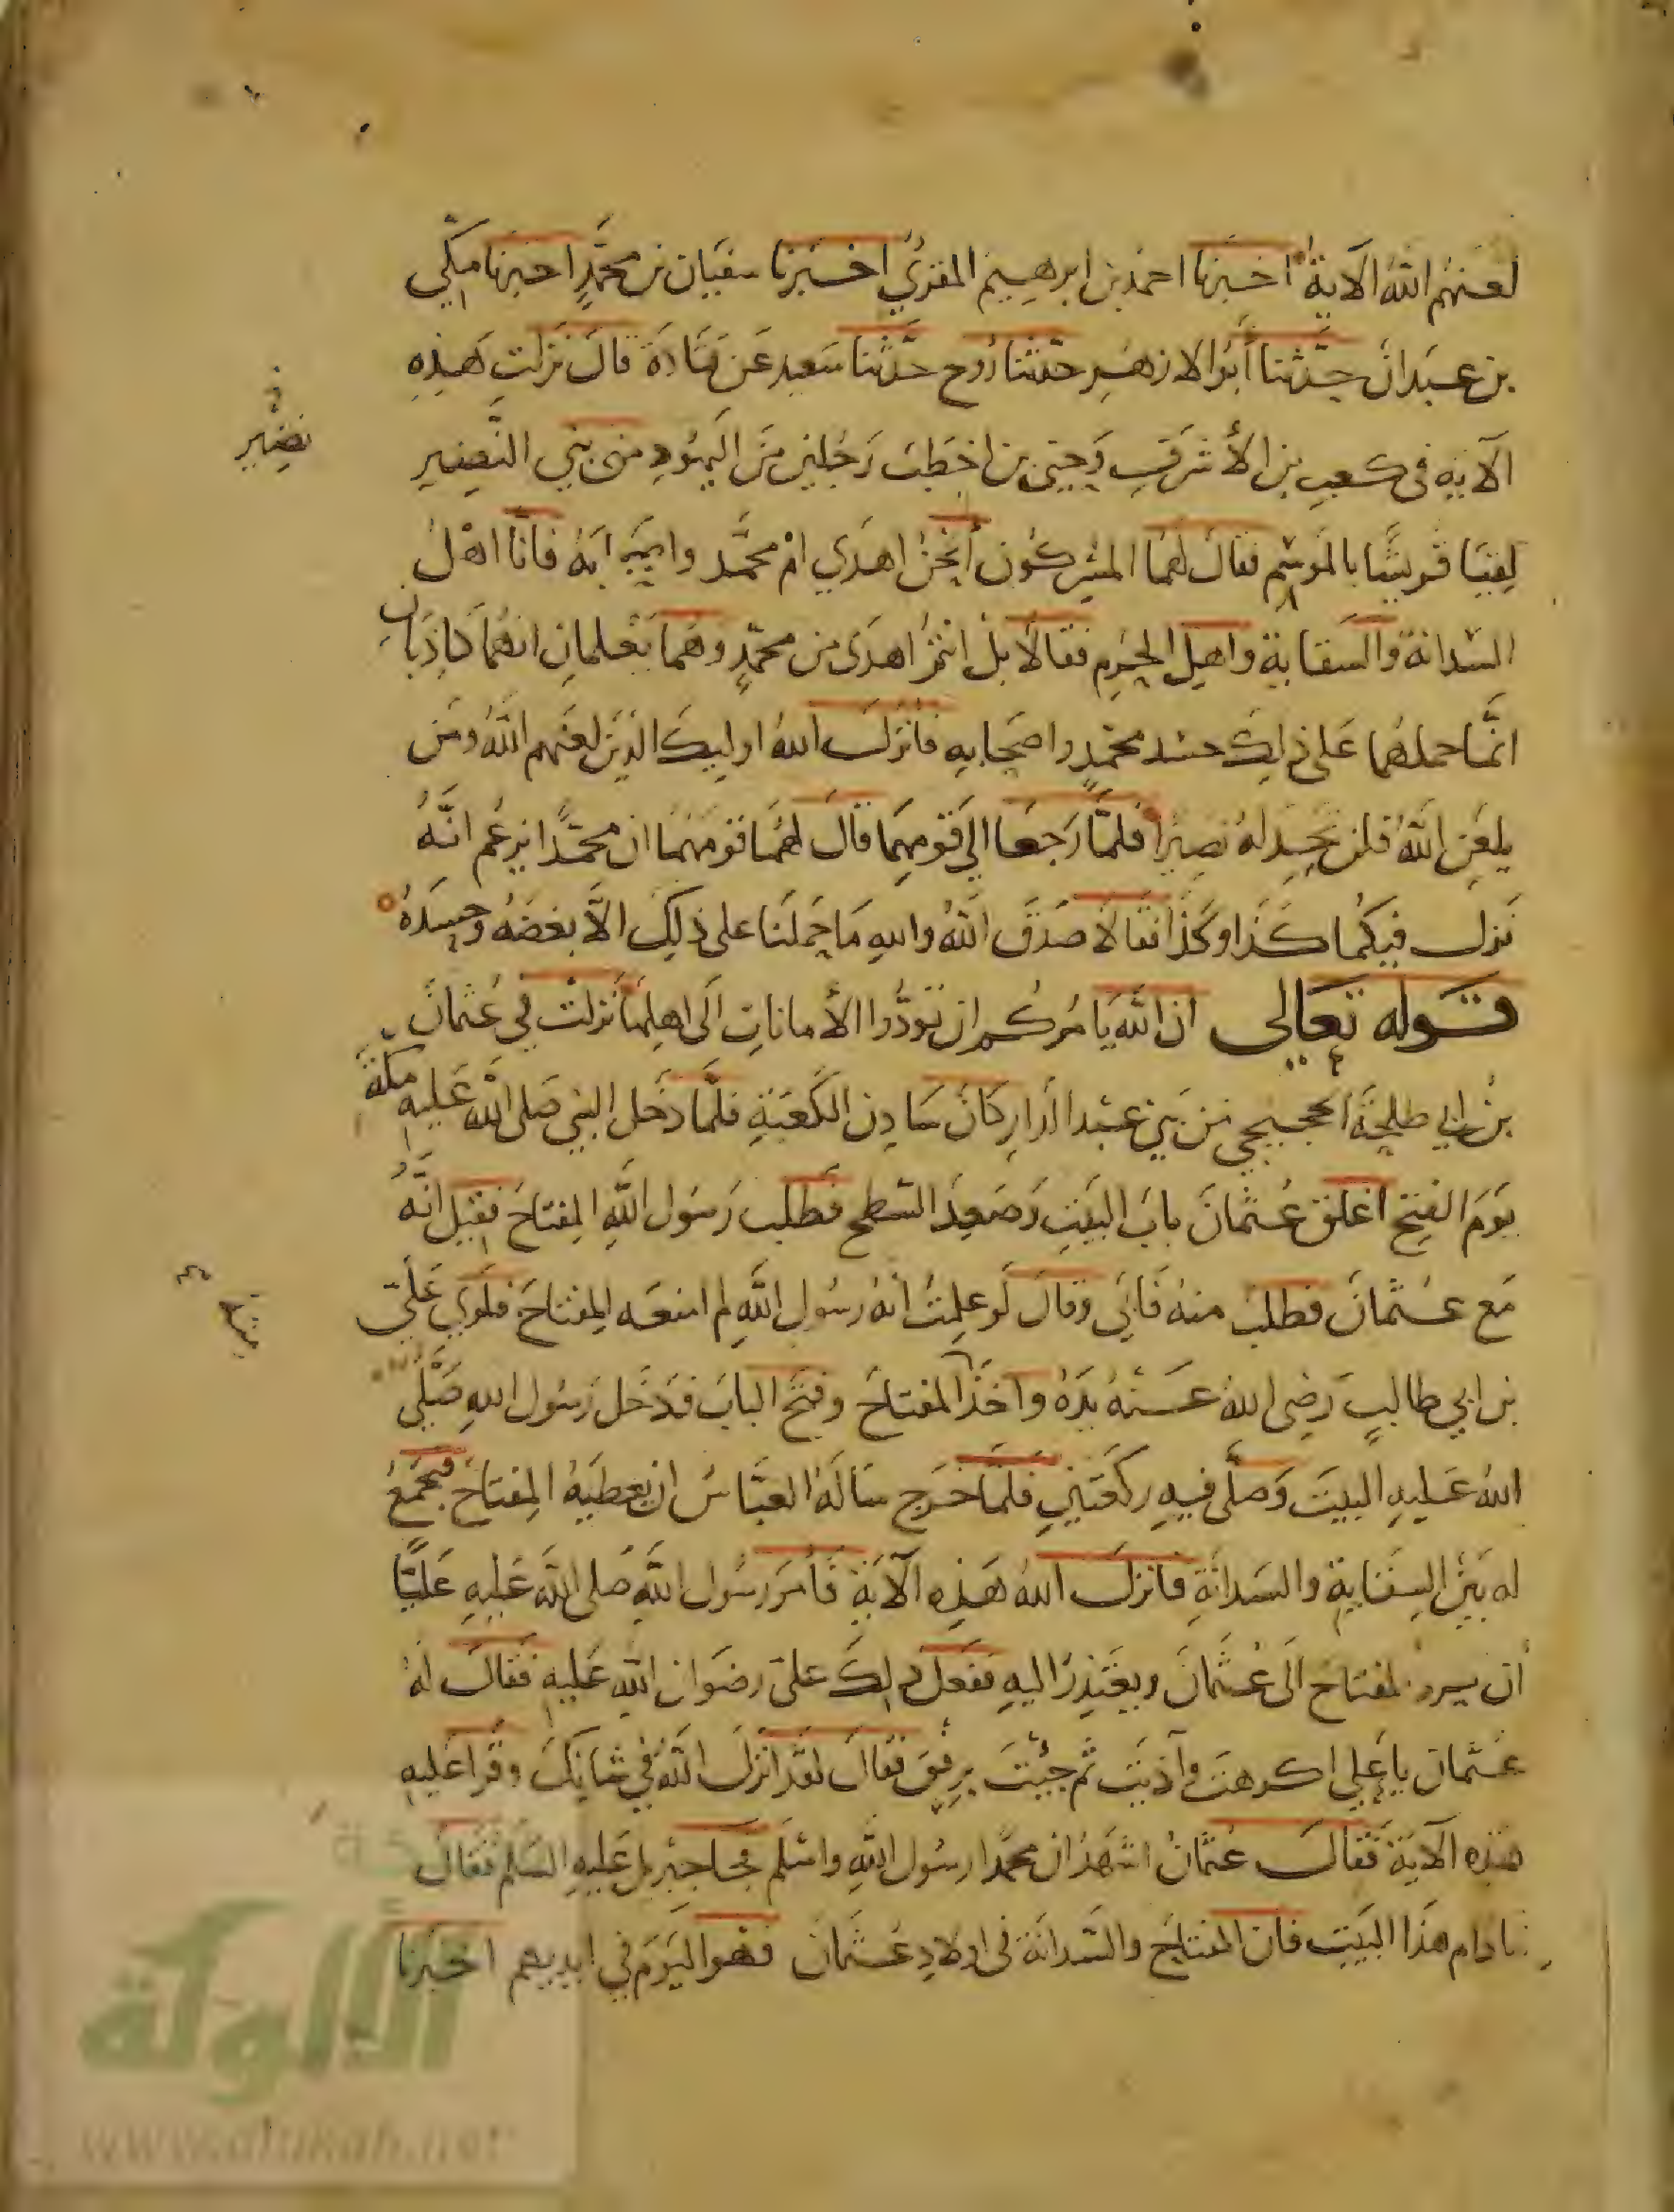 لعنهم الله الآية اخبرنا احمد بن ابرهيم المقري اخبرنا سفيان بن محمد اخبرنا مكي
بن عبدان حدثنا أبو الازهر حدثنا روح حدثنا سعيد عن قتادة قال نزلت هذه
الآية في كعب بن الأشرف وحيي بن اخطب رجلين من اليهود من بني النضير
نضير
لقيا قريشا بالموسم فقال لهما المشركون أنحن اهدي ام محمد واصحابه فانا اهل
السدانة والسقاية واهل الحرم فقالا بل انتم اهدى من محمد وهما يعلمان انهما كاذبان
انما حملهما على ذلك حسد محمد واصحابه فانزل الله اوليك الذين لعنهم الله ومن
يلعن الله فلن تجد له نصيرا فلما رجعا الى قومهما قال لهما قومهما ان محمدا يزعم انه
نزل فيكما كذا وكذا فقالا صدق الله والله ما حملنا على ذلك الا بغضه وحسده
قوله تعالى ان الله يامركم ان تودوا الأمانات الى اهلها نزلت في عثمان
بن ابي طلحة الحجبي من بني عبد الدار كان سادن الكعبة فلما دخل النبي صلى الله عليه مكة
يوم الفتح اغلق عثمان باب البيت وصعد السطح فطلب رسول الله المفتاح فقيل انه
مع عثمان فطلب منه فابى وقال لو علمت انه رسول الله لم امنعه المفتاح فلوي علي
بن ابي طالب رضي الله عنه يده واخذ المفتاح وفتح الباب فدخل رسول الله صلى
الله عليه البيت وصلى فيه ركعتين فلما خرج ساله العباس ان يعطيه المفتاح فيجمع
له بين السقاية والسدانة فانزل الله هذه الآية فأمر رسول الله صلى الله عليه عليا
أن يرد المفتاح الى عثمان ويعتذر اليه ففعل ذلك علي رضوان الله عليه فقال له
عثمان يا علي اكرهت وآذيت ثم جئت برفق فقال لقد انزل الله في شانك وقرا عليه
هذه الآية فقال عثمان اشهد ان محمدا رسول الله واسلم فجا جبريل عليه السلم فقال
ما دام هذا البيت فان المفتاح والسدانة في اولاد عثمان فهو اليوم في ايديهم اخبرنا
الألوكة
www.alukah.net